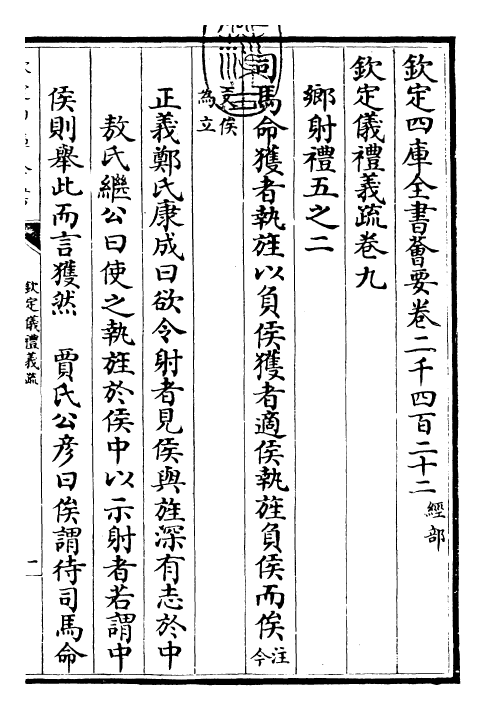 欽定四庫全書薈要卷二千四百二十二 經部
欽定儀禮義疏卷九
鄉射禮五之二
司馬命獲者執旌以負侯獲者適侯執旌負侯而俟 注今
文俟為立
正義鄭氏康成曰欲令射者見侯與旌深有志於中
敖氏繼公曰使之執旌於侯中以示射者若謂中
侯則舉此而言獲然 賈氏公彦曰俟謂待司馬命
欽定儀禮義疏
二